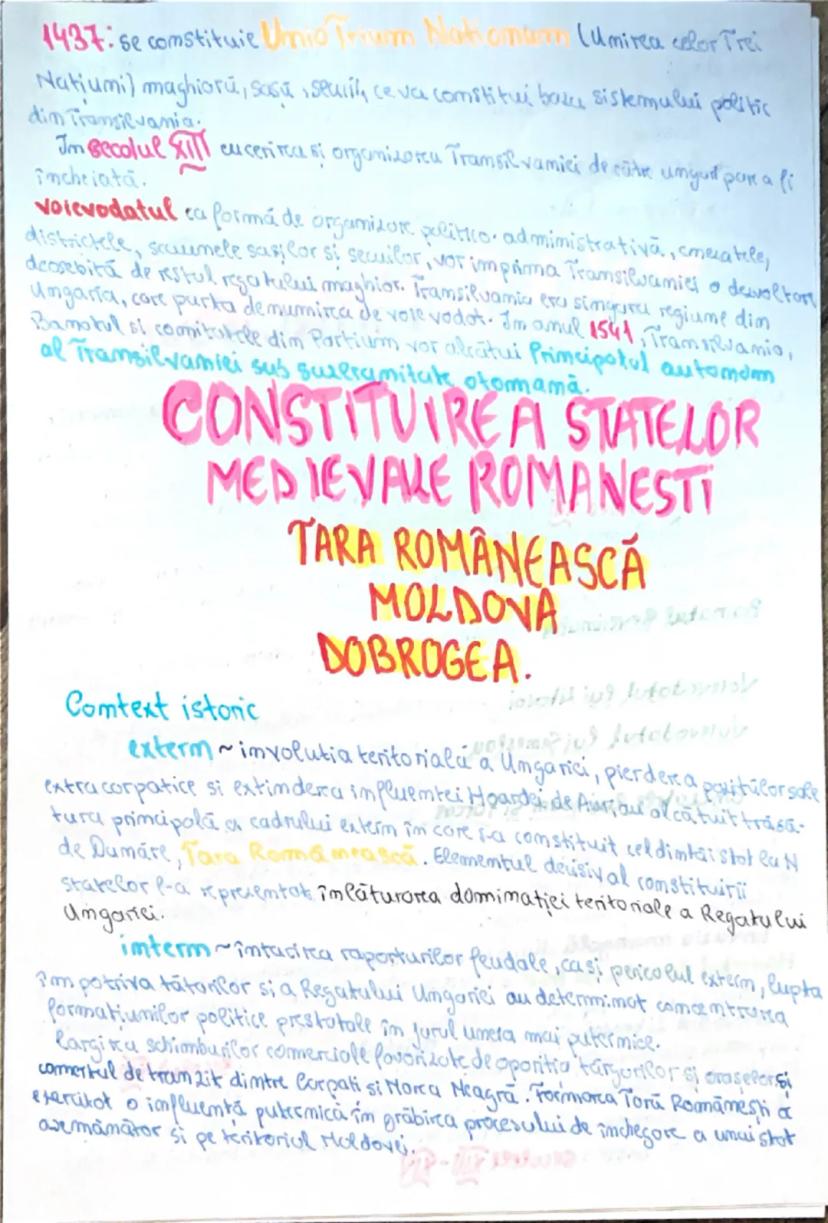 1437: se constituie Unio Trium Nationum (Unirea celor Trei
Națiuni) maghiară, sasă, secuii, ce va constitui baza sistemului politic
din Transilvania.
În secolul XIII cucerirea și organizarea Transilvaniei de către unguri părea a fi
încheiată.
Voievodatul ca formă de organizare politico-administrativă, cnezatele,
districtele, scaunele sașilor și secuilor, vor imprima Transilvaniei o dezvoltare
deosebită de restul regatului maghiar. Transilvania era singura regiune din
Ungaria, care purta denumirea de voievodat. În anul 1541, Transilvania,
Banatul si comitatele din Partium vor alcătui Principatul autonom
al Transilvaniei sub suzeranitate otomană.
CONSTITUIREA STATELOR
MEDIEVALE ROMANESTI
TARA ROMÂNEASCĂ
MOLDOVA
DOBROGEA.
Context istoric
extern ~ involutia teritorială a Ungariei, pierderea pozițiilor sale
extracarpatice si extinderea influentei Hoardei de Aur au alcătuit trăsă-
tura principală a cadrului extern în care s-a constituit cel dintâi stat la N
de Dunăre, Tara Românească. Elementul decisiv al constituirii
statelor l-a reprezentat înlăturarea dominației teritoriale a Regatului
Ungariei.
intern ~ întărirea raporturilor feudale, ca și pericolul extern, lupta
împotriva tătarilor si a Regatului Ungariei au determinat concentrarea
formațiunilor politice prestatale în jurul uneia mai puternice.
Largirea schimburilor comerciale favorizate de aparitia târgurilor și oraselor și
comertul de tranzit dintre Carpati si Marea Neagră. Formarea Tarii Românești a
exercitat o influentă puternică în grăbirea procesului de închegare a unui stat
asemănător si pe teritoriul Moldovei.